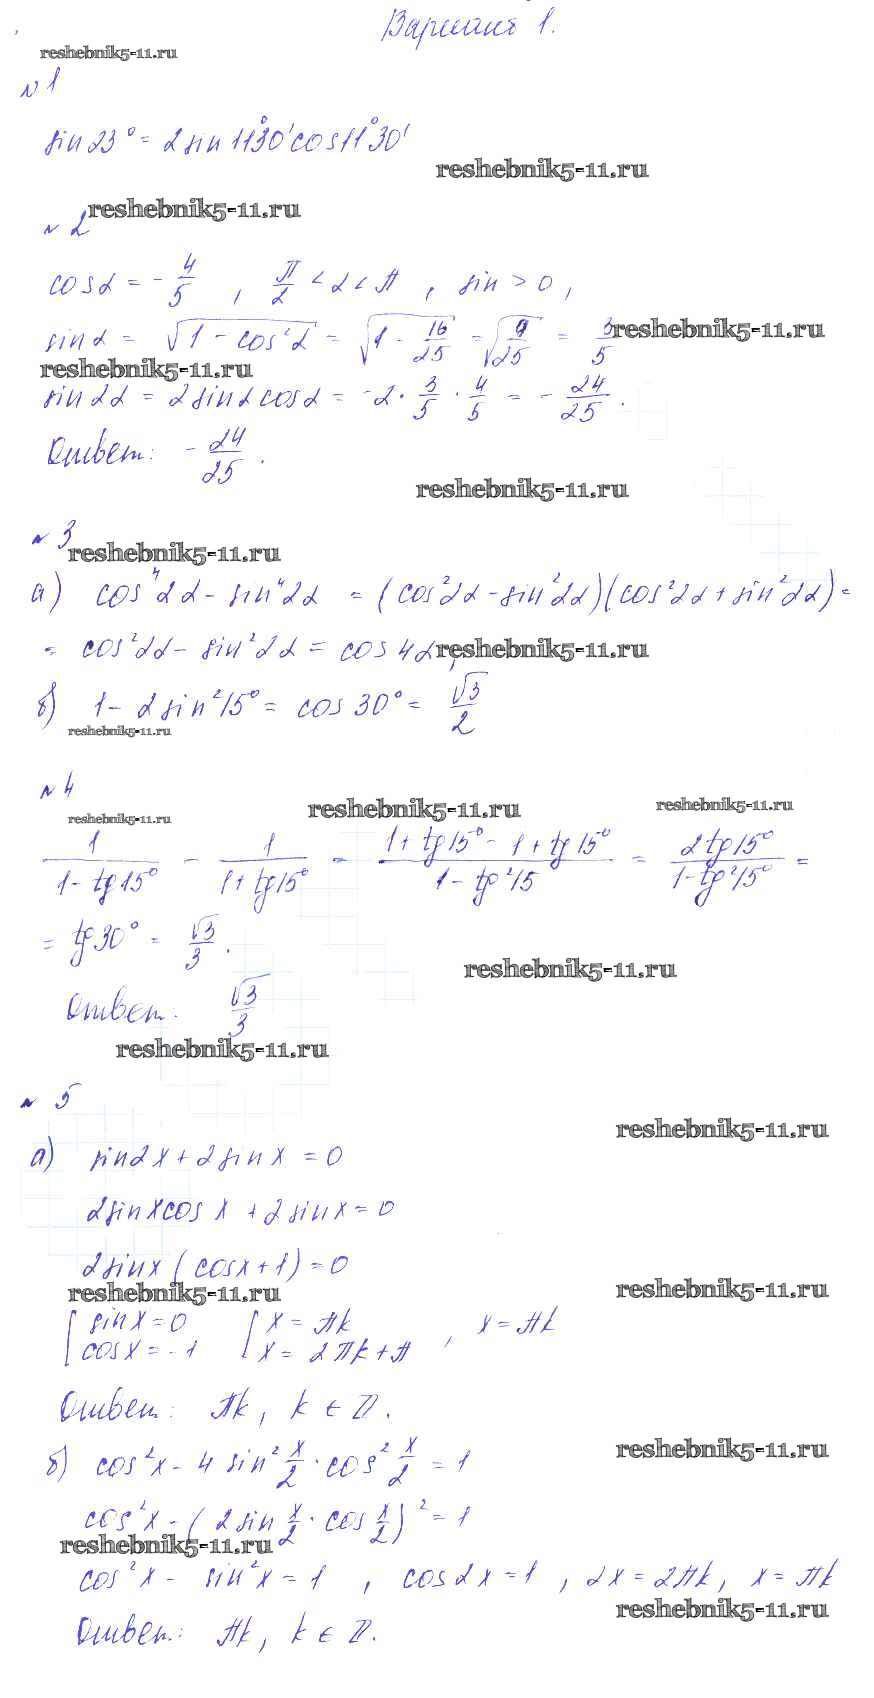 Вариант 1.
reshebnik5-11.ru
№1
sin 23° = 2 sin 11°30' cos 11°30'
reshebnik5-11.ru
№ 2 reshebnik5-11.ru
cos α = - 4/5 , π/2 < α < π , sin > 0 ,
sin α = √(1 - cos²α) = √(1 - 16/25) = √(9/25) = 3/5 reshebnik5-11.ru
reshebnik5-11.ru
sin 2α = 2 sin α cos α = -2 · 3/5 · 4/5 = - 24/25 .
Ответ: - 24/25 .
reshebnik5-11.ru
№ 3 reshebnik5-11.ru
а) cos⁴2α - sin⁴2α = (cos²2α - sin²2α)(cos²2α + sin²2α) =
= cos²2α - sin²2α = cos 4α , reshebnik5-11.ru
б) 1 - 2 sin²15° = cos 30° = √3/2
reshebnik5-11.ru
№ 4
reshebnik5-11.ru reshebnik5-11.ru reshebnik5-11.ru
1/(1 - tg 15°) - 1/(1 + tg 15°) = (1 + tg 15° - 1 + tg 15°)/(1 - tg²15) = 2 tg 15°/(1 - tg²15°) =
= tg 30° = √3/3 .
reshebnik5-11.ru
Ответ: √3/3
reshebnik5-11.ru
№ 5
reshebnik5-11.ru
а) sin 2x + 2 sin x = 0
2 sin x cos x + 2 sin x = 0
2 sin x (cos x + 1) = 0
reshebnik5-11.ru reshebnik5-11.ru
[ sin x = 0 [ x = πk
cos x = -1 x = 2πk + π , x = πk
Ответ: πk, k ∈ Z.
reshebnik5-11.ru
б) cos²x - 4 sin² x/2 · cos² x/2 = 1
cos²x - (2 sin x/2 · cos x/2)² = 1
reshebnik5-11.ru
cos²x - sin²x = 1 , cos 2x = 1 , 2x = 2πk, x = πk
reshebnik5-11.ru
Ответ: πk, k ∈ Z.